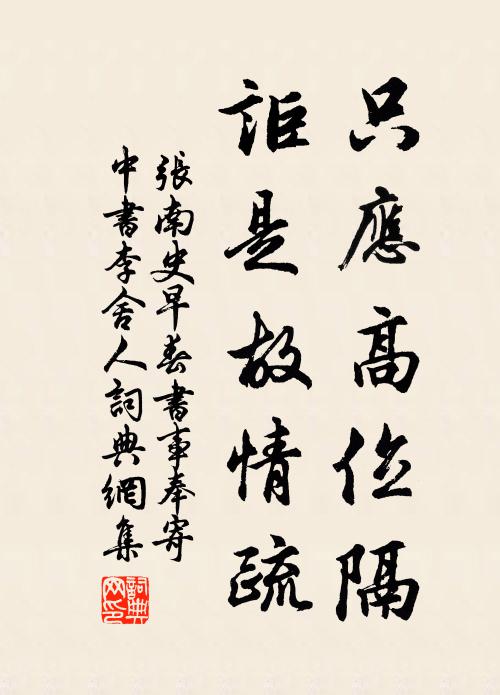 只應高位隔
詎是故情疏
張南史早春書事奉寄
中書李舍人詞典網集
詞典網印